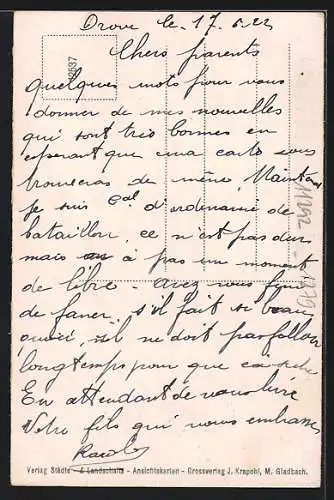 Drove le 17.6.22
Chers parents
quelques mots pour vous
donner de mes nouvelles
qui sont très bonnes en
esperant que ma carte vous
trouveras de même Maintenant
je suis Cal d'ordinaire de
bataillon ce n'est pas dur
mais on à pas un moment
de libre. avez vous fini
de faner, s'il fait si beau
qu'ici, il ne doit pas falloir
longtemps pour que ça sèche
En attendant de vous lire
Votre fils qui vous embrasse
Verlag Städte- & Landschafts-Ansichtskarten - Grossvering J. Krapohl, M. Gladbach.